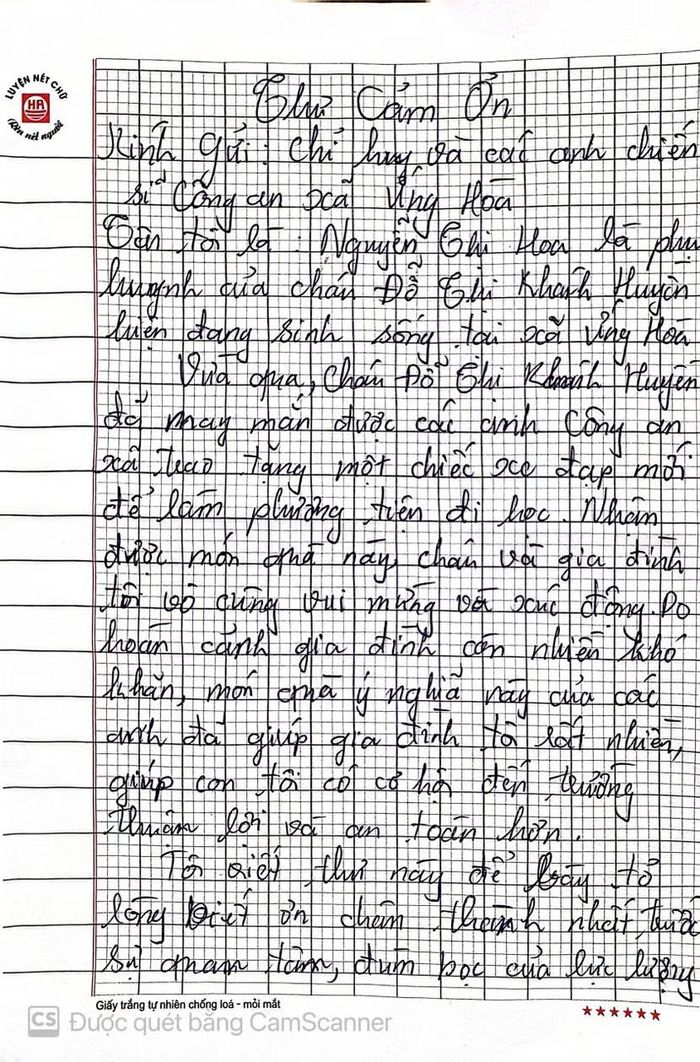 LUYỆN NÉT CHỮ
HA
Rèn nết người
Thư Cảm Ơn
Kính gửi : Chỉ huy và các anh chiến
sĩ Công an xã Ứng Hòa
Tên tôi là : Nguyễn Thị Hoa là phụ
huynh của cháu Đỗ Thị Khánh Huyền
hiện đang sinh sống tại xã Ứng Hòa
Vừa qua, cháu Đỗ Thị Khánh Huyền
đã may mắn được các anh Công an
xã trao tặng một chiếc xe đạp mới
để làm phương tiện đi học. Nhận
được món quà này, cháu và gia đình
tôi vô cùng vui mừng và xúc động. Do
hoàn cảnh gia đình còn nhiều khó
khăn, món quà ý nghĩa này của các
anh đã giúp gia đình tôi rất nhiều,
giúp con tôi có cơ hội đến trường
thuận lợi và an toàn hơn.
Tôi viết thư này để bày tỏ
lòng biết ơn chân thành nhất trước
sự quan tâm, đùm bọc của lực lượng
Giấy trắng tự nhiên chống loá - mỏi mắt
CS Được quét bằng CamScanner